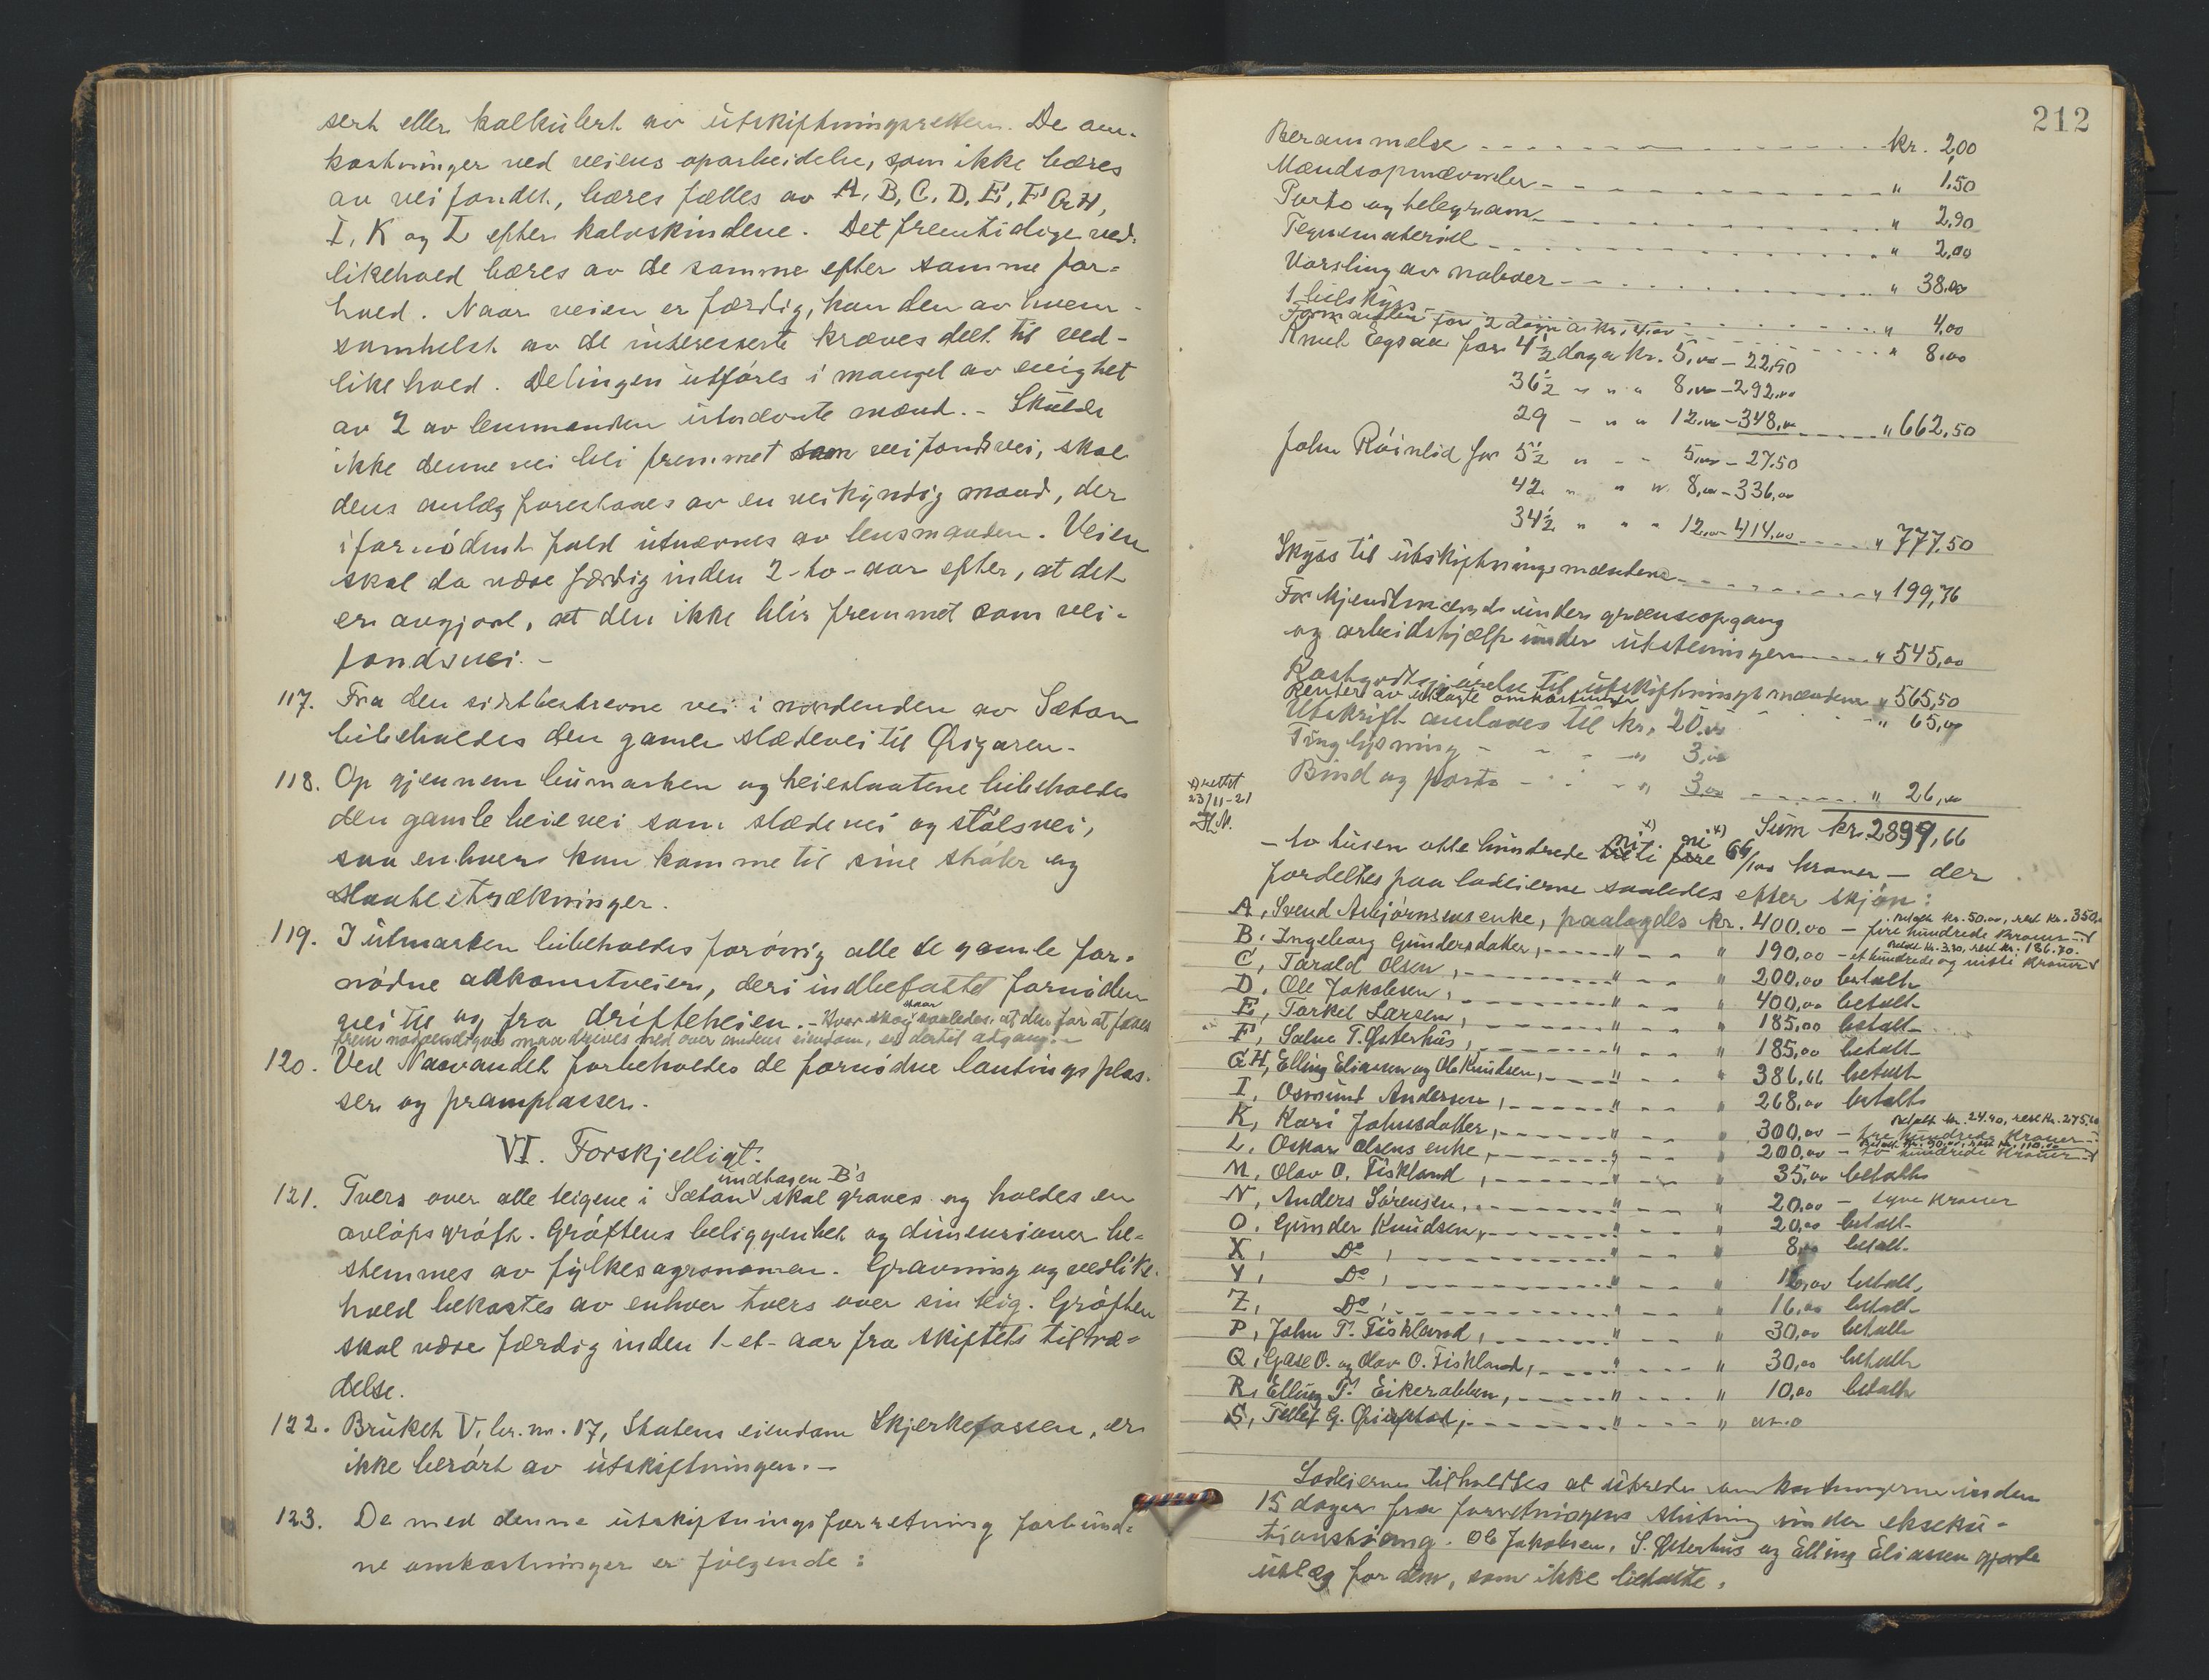 sert eller kalkulert av utskiftningsretten. De om-
kostninger ved veiens oparbeidelse, som ikke bæres
av veifondet, bæres fælles av A, B, C, D, E, F, GH,
I, K og L efter kalvskindene. Det fremtidige ved-
likehold bæres av de samme efter samme for-
hold. Naar veien er færdig, kan den av hvem-
somhelst av de interesserte kræves delt til ved-
likehold. Delingen utføres i mangel av enighet
av 2 av lensmanden utnævnte mænd. - Skulde
ikke denne vei bli fremmet som veifondsvei, skal
dens anlæg forestaaes av en veikyndig mand, der
i fornødent fald utnævnes av lensmanden. Veien
skal da være færdig inden 2-to-aar efter, at det
er avgjort, at den ikke blir fremmet som vei-
fondsvei. -
117. Fra den sidstbeskrevne vei i nordenden av Sætan
bibeholdes den gamle slædevei til Øigaren.
118. Op gjennem bumarken og heieslaatene bibeholdes
den gamle heievei som slædevei og stölsvei,
saa enhver kan komme til sine stöler og
slaattestrækninger.
119. I utmarken bibeholdes forøvrig alle de gamle for-
nødne adkomstveier, deri indbefattet fornöden
vei til og fra drifteheien. - Hvor skog staar saaledes, at den for at faaes
frem nødvendigvis maa drives ned over andens eiendom, er dertil adgang. -
120. Ved Naavandet forbeholdes de fornödne lantingsplas-
ser og pramplasser.
VI. Forskjelligt.
undtagen B's
121. Tvers over alle teigene i Sætan skal graves og holdes en
avløpsgröft. Gröftens beliggenhet og dimensioner be-
stemmes av fylkesagronomen. Gravning og vedlike-
hold bekostes av enhver tvers over sin teig. Gröften
skal være færdig inden 1-et-aar fra skiftets tiltræ-
delse.
122. Bruket V, br. nr. 17, Statens eiendom Skjerkefossen, er
ikke berört av utskiftningen. -
123. De med denne utskiftningsforretning forbund-
ne omkostninger er følgende:
212
Berammelse - - - kr. 2,00
Mændsopnævnelse - - - " 1,50
Porto og telegram - - - " 2,90
Tegnemateriell - - - " 2,00
Varsling av naboer - - - " 38,00
1 bilskyss - - - " 4,00
Formanden for 2 døgn a kr. 4,00 - - - " 8,00
Knut Egsaa for 4½ dag a kr. 5,00 - 22,50
36½ " " " 8,00 - 292,00
29 - " " 12,00 - 348,00 - - - " 662,50
John Röinlid for 5½ " - - 5,00 - 27,50
42 " " " 8,00 - 336,00
34½ " " " 12,00 - 414,00 - - - " 777,50
Skyss til utskiftningsmændene - - - " 199,76
For kjendtmænd under grænseopgang
og arbeidshjælp under utstikningen - - - " 545,00
Kostgodtgjørelse til utskiftningsmændene " 565,50
Renter av utlagte omkostninger - - - " 65,00
Utskrift anslaaes til kr. 20,00
Tinglysning - - - " 3,00
Bind og porto - - - " 3,00 - - - " 26,00
Sum kr. 2899,66
x) rettet
23/11-21
- to tusen otte hundrede ni x) ti ni x) 66/100 kroner - der
fordeltes paa lodeierne saaledes efter skjön:
A, Svend Asbjörnsens enke, paalagdes kr. 400.00 - fire hundrede kroner - Betalt kr. 50.00, rest kr. 350.
B, Ingeborg Gundersdatter, - - - " 190,00 - et hundrede og nitti kroner Betalt kr. 3.30, rest kr. 186.70.
C, Tarald Olsen, - - - " 200,00 betalt
D, Ole Jakobsen, - - - " 400,00 betalt
E, Torkel Larsen, - - - " 185,00 betalt
F, Salve T. Østerhus, - - - " 185,00 betalt
GH, Elling Eliassen og Ole Knudsen, - - - " 386,66 betalt
I, Osmund Andersen, - - - " 268,00 betalt
K, Kari Johnsdatter, - - - " 300,00 - tre hundrede kroner - Betalt kr. 24.40, rest kr. 275.60
L, Oskar Olsens enke, - - - " 200,00 - to hundrede kroner - Betalt kr. 90.00, rest kr. 110.00
M, Olav O. Fiskland, - - - " 35,00 betalt
N, Anders Sörensen, - - - " 20,00 - tyve kroner
O, Gunder Knudsen, - - - " 20,00 betalt
X, Do, - - - " 8,00 betalt
Y, Do, - - - " 16,00 betalt
Z, Do, - - - " 16,00 betalt
P, John T. Fiskland, - - - " 30,00 betalt
Q, Gase O. og Olav O. Fiskland, - - - " 30,00 betalt
R, Elling T. Eikerabben, - - - " 10,00 betalt
S, Tellef G. - - - "
Lodeierne tilholdtes at utrede omkostningerne inden
15 dager fra forretningens slutning under ekseku-
tionstvang. Ole Jakobsen, S. Østerhus og Elling Eliassen gjorde
utlæg for dem, som ikke betalte.